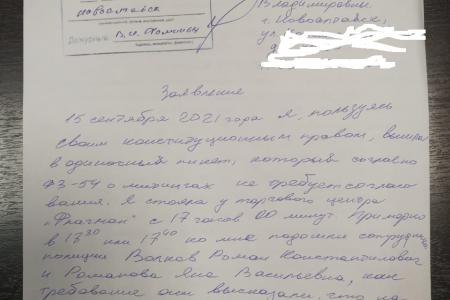 Новоалтайск
Дежурный
Владимировны
г. Новоалтайск,
ул.
Заявление
15 сентября 2021 года я, пользуясь
своим конституционным правом, вышла
в одиночный пикет, который согласно
ФЗ-54 о митингах не требует согласо
вания. Я стояла у торгового центра
"Флагман" с 17 часов 00 минут. Примерно
в 17 30 или 17 40 ко мне подошли сотрудники
полиции Волков Роман Константинович
и Романова Яна Васильевна, как
требование они высказали, что на